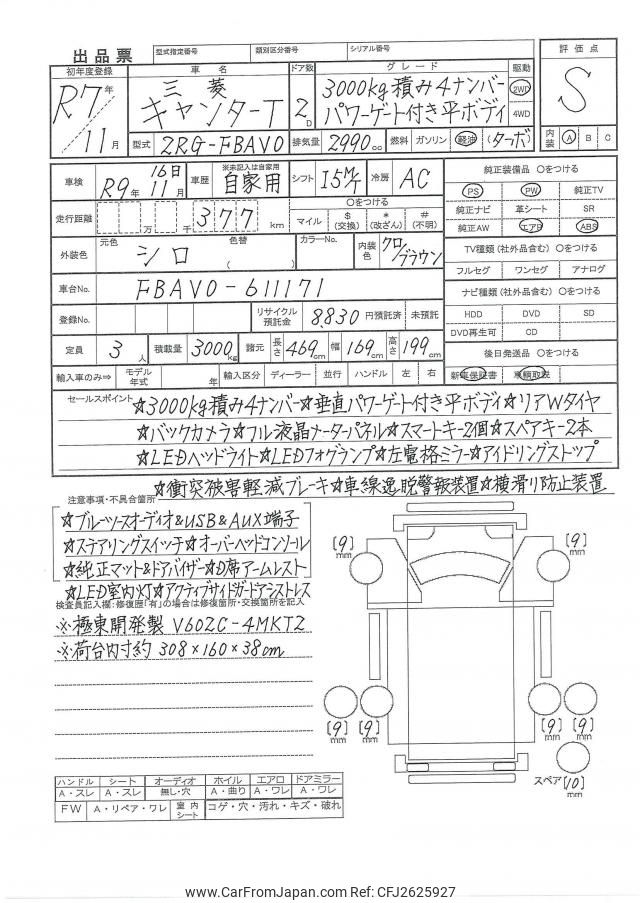 出品票 型式指定番号 類別区分番号 シリアル番号
初年度登録 車名 ドア数 グレード 駆動 評価点
R7年 11月
三菱 キャンターT
2D
3000kg積み4ナンバー
パワーゲート付き平ボディ
2WD
4WD
S
型式 2RG-FBAV0 排気量 2990cc 燃料 ガソリン 軽油 (ターボ) 内装 A B C
車検 R9年 11月 16日 車歴 ※未記入は自家用 自家用 シフト I5M/T 冷房 AC 純正装備品 ○をつける
PS PW 純正TV
走行距離 万 千 377km ○をつける
マイル $(交換) *(改ざん) #(不明)
純正ナビ 革シート SR
純正AW エアB ABS
外装色 元色 シロ 色替 ( ) カラーNo. 内装色 クロ/ブラウン
TV種類(社外品含む) ○をつける
フルセグ ワンセグ アナログ
車台No. FBAV0-611171
ナビ種類(社外品含む) ○をつける
登録No. リサイクル預託金 8830円預託済 未預託
HDD DVD SD
DVD再生可 CD
定員 3人 積載量 3000kg 諸元 長さ 469cm 幅 169cm 高さ 199cm
後日発送品 ○をつける
輸入車のみ⇒ モデル年式 年 輸入区分 ディーラー 並行 ハンドル 左 右 新車保証書 車輌取説
セールスポイント
☆3000kg積み4ナンバー☆垂直パワーゲート付き平ボディ☆リアWタイヤ
☆バックカメラ☆フル液晶メーターパネル☆スマートキー2個☆スペアキー2本
☆LEDヘッドライト☆LEDフォグランプ☆左電格ミラー☆アイドリングストップ
☆衝突被害軽減ブレーキ☆車線逸脱警報装置☆横滑り防止装置
注意事項・不具合箇所
☆ブルーツースオーディオ&USB&AUX端子
☆ステアリングスイッチ☆オーバーヘッドコンソール
☆純正マット&ドアバイザー☆D席アームレスト
☆LED室内灯☆アクティブサイドガードアシストレス
検査員記入欄:修復歴「有」の場合は修復箇所・交換箇所を記入
※極東開発製 V602C-4MKT2
※荷台内寸約 308×160×38cm
[9]mm [9]mm
[9]mm [9]mm [9]mm [9]mm
スペア [10]mm
ハンドル シート オーディオ ホイル エアロ ドアミラー
A・スレ A・スレ 無し・穴 A・曲り A・ワレ A・ワレ
FW A・リペア・ワレ 室内シート コゲ・穴・汚れ・キズ・破れ
www.CarFromJapan.com Ref: CFJ2625927